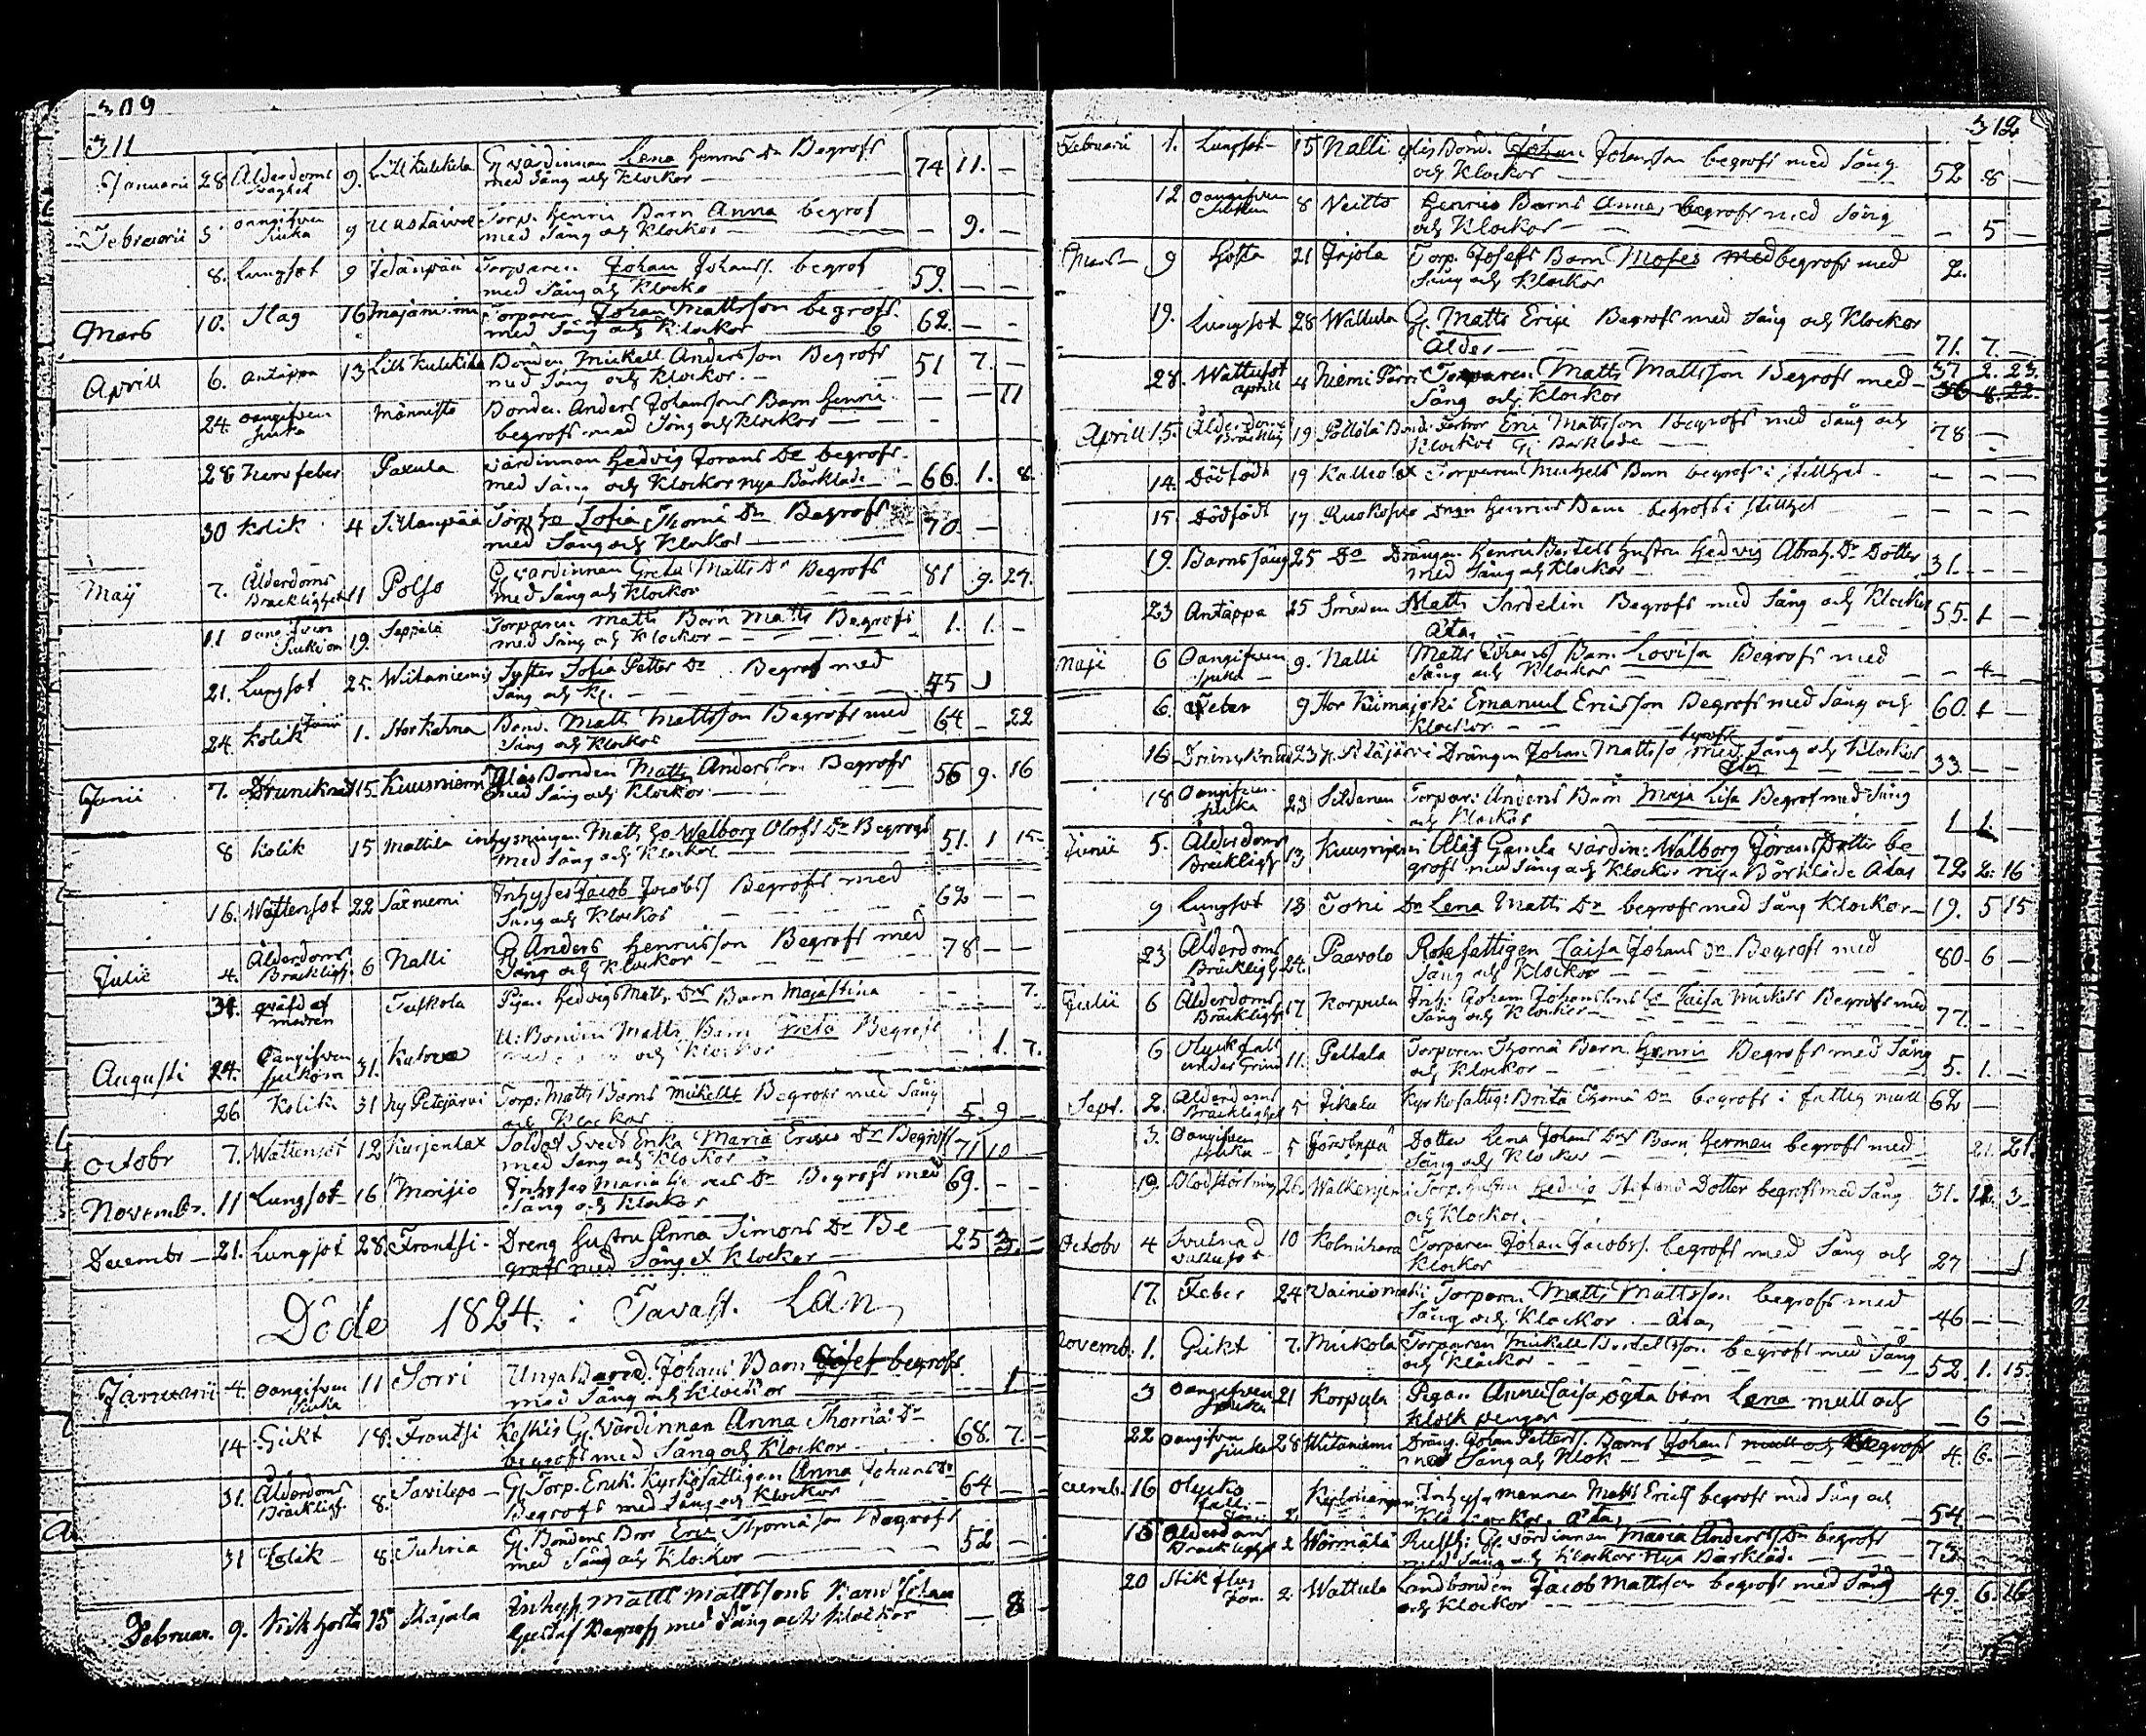 309
311
Januarii 28 Ålderdoms 9. Lill Kulckila G. värdinnan Lena Henrics Dr Begrofs 74 11. —
svaghet med Sång och Klockor —
Februarii 5. oangifven 9 Torp. Henric Barn Anna begrof — 9. —
Siuka med Sång och Klockor —
8. Lungsot 9 Torparen Johan Johanss. begrof 59. — —
med Sång och Klocko
Mars 10. Slag 16 Majaniemi Torparen Johan Mattsson begrofs 62. — —
med Sång och Klockor
Aprill 6. Antäppa 13 Lill Kulckila Bonden Mickell Andersson Begrofs 51 7. —
med Sång och Klockor. —
24. oangifven Männistö Bonden Anders Johanssons Barn Henric — — 11
siuka begrofs med Sång och Klockor —
28 Nervfeber Paxula värdinnan Hedvig Jorans Dr begrofs 66. 1. 8.
med Sång och Klockor nya Bårkläde
30 Kolik 4 Sillanpää Torp. Ho Sofia Thomæ Dr Begrofs 70 —
med Sång och Klockor —
Maij 7. Ålderdoms 11 Polso G. värdinnan Greta Matts Dr Begrofs 81 9. 24.
Bräcklighet med Sång och Klockor
11 oangifven 19. Seppälä Torparen Matts Barn Matts Begrofs 1. 1. —
Siukdom med Sång och Klockor —
21. Lungsot 25. Witaniemi Syster Sofia Petter Dr Begrof med 75
Sång och Kl. —
24. Kolik Junii 1. Stor Kahra Bond. Matts Mattsson Begrofs med 64 — 22
Sång och Klockor
Junii 7. Drunknat 15 Kuusniemi Bonden Matts Andersson Begrofs 56 9. 16
med Sång och Klockor —
8 Kolik 15 Mattila inhysningen Matts Ho Walborg Olofs Dr Begrofs 51. 1 15
med Sång och Klockor —
16. Wattensot 22 Särniemi Inhyses Jacob Jacobss Begrofs med 62 — —
Sång och Klockor
Julii 4. Ålderdoms 6 Nalli G. Anders Henricsson Begrofs med 78 — —
Bräckligh. Sång och Klockor
31. qväfd af Tuskola Pigan Hedvig Matts Drs Barn Majastina 7.
modren
Augusti 24. Oangifven 31. U. Bonden Matts Barn Greta Begrofs — 1. 7.
siukdom och Klockor
26 Kolik 31 Ny Petejärvi Torp. Matts Barns Mickells Begrofs med Sång 5. 9 —
och Klockor
Octobr 7. Wattensot 12 Kurjenlax Soldat Maria Erics Dr Begrofs 71 10 —
med Sång och Klockor
Novembr. 11 Lungsot 16 Morijio Inhyses Maria Dr Begrofs med 69. — —
Sång och Klockor
Decembr 21. Lungsot 28. Frantsi. Dreng Hustru Anna Simons Dr Be 25 3. —
grofs med Sång et Klockor —
Döde 1824. i Tavast. Län,
Januarii 4. oangifven 11 Sorri Unga Bond. Johans Barn Josef begrofs 1
siuka med Sång och Klockor
14 Gickt 18. Frantsi Keskis G. Värdinnan Anna Thomæ Dr 68. 7. —
begrofs med Sång och Klockor
31. Ålderdoms 8. Savilepo G. Torp. Erik. Kyrkofattigen Anna Johans Dr 64 — —
Bräckligh. Begrofs med Sång och Klockor
31 Kolik 8. Tuhria G. Bondens Bror Eric Thomæson Begrofs 52 —
med Sång och Klockor —
Februar. 9. Kikhosta 15 Majala Inhys Matts Mattssons Barn Johan — 8 —
Gustaf Begrofs med Sång och Klockor
312
Februarii 1. Lungsot 15 Nalli Bond. Johan Johansson begrofs med Sång 52 8 —
och Klockor
12 Oangifven 8 Neitto Henrics Barns Anna, begrofs med Sång — 5 —
Siukan och Klockor —
Mars 9 Hosta 21 Jrjola Torp. Josefs Barn Moses begrofs med 2.
Sång och Klockor
19. Lungsot 28 Wattula G. Matts Erici Begrofs med Sång och Klockor 71. 7. —
Alder —
28. Wattusot 4 Niemi Torparen Matts Mattsson Begrofs med 37 2. 23.
aprill Sång och Klockor 36 8. 22.
Aprill 15. Ålderdoms 19 Pöllölä Bond. Farbror Eric Mattsson Begrofs med Sång och 78 —
Bräcklig Klockor G. Barklade —
14. Dödfödt 19 Torparen Michels Barn begrofs i stillhet — — —
15. Dödfödt 19 Ruokosuo Henrics Barn begrofs i stillhet — — —
19. Barnssäng 25 Do Drängen Henric Bertells hustru Hedvig Abrah. Dr Dotter 31. — —
med Sång och Klockor
23 Antäppa 25 Smeden Matts Sardelin Begrofs med Sång och Klockor 55. 1 —
Maji 6 Oangifven 9. Nalli Matts Johanss Barn Lovisa Begrofs med — 4 —
siuka Sång och Klockor
6. Feber 9 Emanuel Ericsson Begrofs med Sång och 60. 1 —
Klockor —
16 23 Drängen Johan Mattss. begrofs med Sång och Klockor 33. —
18 Oangifven 23 Sildanen Torpar: Anders Barn Maja Lisa Begrof med Sång 1 1. —
siuka och Klockor
Junii 5. Ålderdoms 13 Kuusniemi Gamla värdin: Walborg Jorans Dotter be 72 2. 16
Bräckligh grofs med Sång och Klockor nya Bårkläde
9 Lungsot 13 Toni Dr Lena Matts Dr begrofs med Sång Klockor 19. 5 15
23 Ålderdoms 24. Paavolo Rotefattigen Caisa Johans Dr Begrofs med 80 6 —
Bräckligh Sång och Klockor
Julii 6 Ålderdoms 17 Korpula Inh: Johan Johanssons Ho Caisa Mickels Begrofs med 77. — —
Bräckligh Sång och Klockor
6 Olyckfall 11. Peltola Torparen Thomæ Barn Henric Begrofs med Sång 5. 1. —
under Grind och Klockor —
Sept. 2. Ålderdoms 5 Kyrkofattig: Brita Thomæ Dr begrofs i fattig mull 62 —
Bräcklighet
3. Oangifven 5 Dotter Lena Johans Drs Barn Herman begrofs med 21. 21.
siuka Sång och Klockor
19. Blodstörtning 26. Torp. hustru Hedvig Stefans Dotter begrofs med Sång 31. 3
och Klockor.
Octobr 4 Svulnad 10 Torparen Johan Jacobss. begrofs med Sång och 27 — 1
vattusot Klockor
17. Feber 24 Torparen Matts Mattsson begrofs med 46 — —
Sång och Klockor.
Novemb. 1. Gickt 7. Mickola Torparen Mickell Bertelsson begrofs med Sång 52. 1. 15
och Klockor
3 Oangifven 21 Korpula Pigan Anna Caisas barn Lena mull och — 6 —
siuka Klock pengar —
22 Oangifven 28 Witaniemi Dräng. Johan Petterss. Barns Johans mull och Begrofs 4. 6. —
siuka med Sång och Klok
Decemb. 16 Olycks 2 Inhyses mannen Matts Ericss begrofs med Sång och 54 —
fall Klockor
15 Ålderdoms 2 Wörmälä Rusth: G. Värdinnan Maria Anders Dr begrofs 73.
Bräcklighet med Sång och Klockor Nya Barkläde
20 Stik flus 2 Wattula Landbonden Jacob Mattsson begrofs med Sång 49. 6. 16
och Klockor